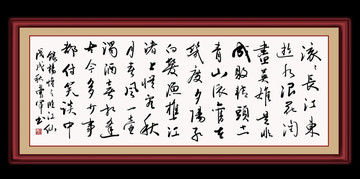 滚滚長江東
逝水浪花淘
盡英雄是非
成敗轉頭空
青山依舊在
幾度夕陽紅
白髮漁樵江
渚上慣看秋
月春風一壺
濁酒喜相逢
古今多少事
都付笑談中
楊慎臨江仙
戊戌秋書